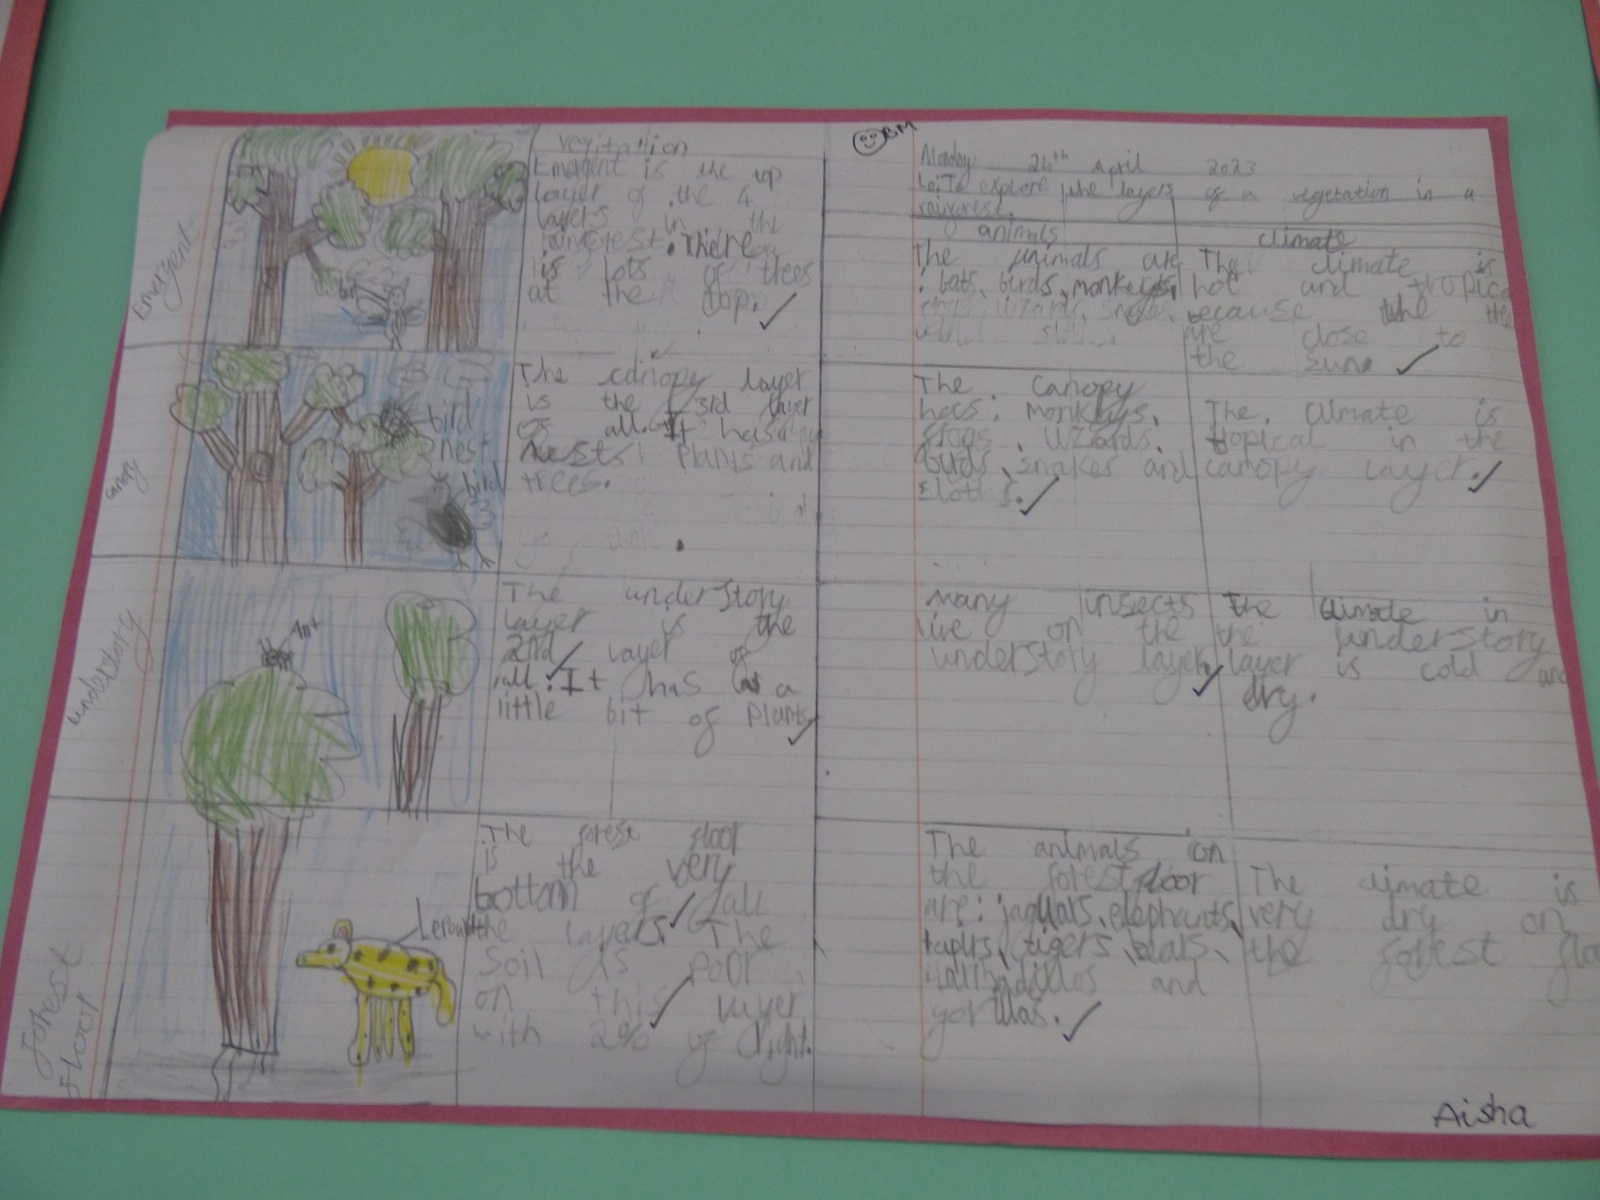 BM
Monday 24th April 2023
Lo: To explore the layers of a vegetation in a
rainforest.
vegitation
animals
climate
Emergent
Emergent is the top
layer of the 4
layers in the
There
is lots of trees
at the top.
br
The animals are
: bats, birds, monkeys,
The climate is
hot and tropical
because the
are close to
the sun.
canopy
bird
nest
bird
The canopy layer
is the 3rd layer
of all. It has
nests plants and
trees.
The canopy
has: monkeys,
frogs, lizards,
birds, snakes and
sloths.
The climate is
tropical in the
canopy layer.
understory
Ant
The understory
layer is the
2nd layer of
all. It has a
little bit of plants
Many insects
live on the
understory layer,
The climate in
the understory
layer is cold and
dry.
forest
floor
The forest floor
is the very
bottom of all
the layers. The
soil is poor
on this layer
with 2% of light.
The animals on
the forest floor
are: jaguars, elephants,
tapirs, tigers, bears,
and
gorillas.
The climate is
very dry on
the forest flo
Aisha